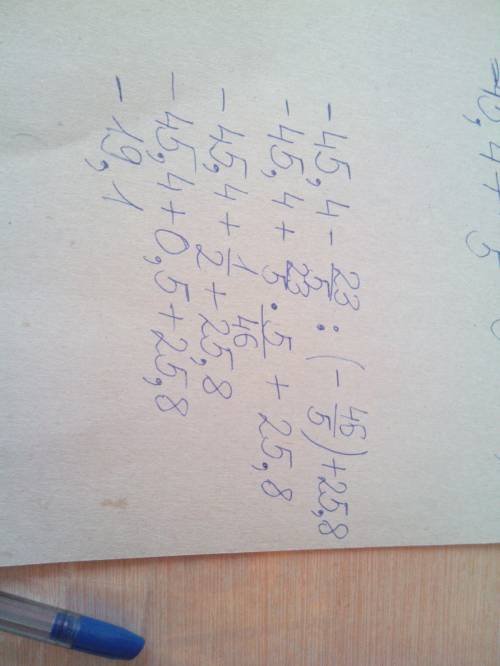 =40,4+5
-45,4 - 23/5 : (-46/5) + 25,8
-45,4 + 23/5 · 5/46 + 25,8
-45,4 + 1/2 + 25,8
-45,4 + 0,5 + 25,8
-19,1